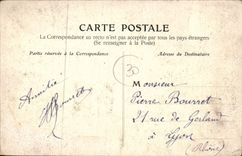 CARTE POSTALE
La Correspondance au recto n'est pas acceptée par tous les pays étrangers
(Se renseigner à la Poste)
Partie réservée à la Correspondance
Adresse du Destinataire
30
Amitié
Monsieur
Pierre Bourret
21 rue de Gerland
à Lyon
(Rhône)